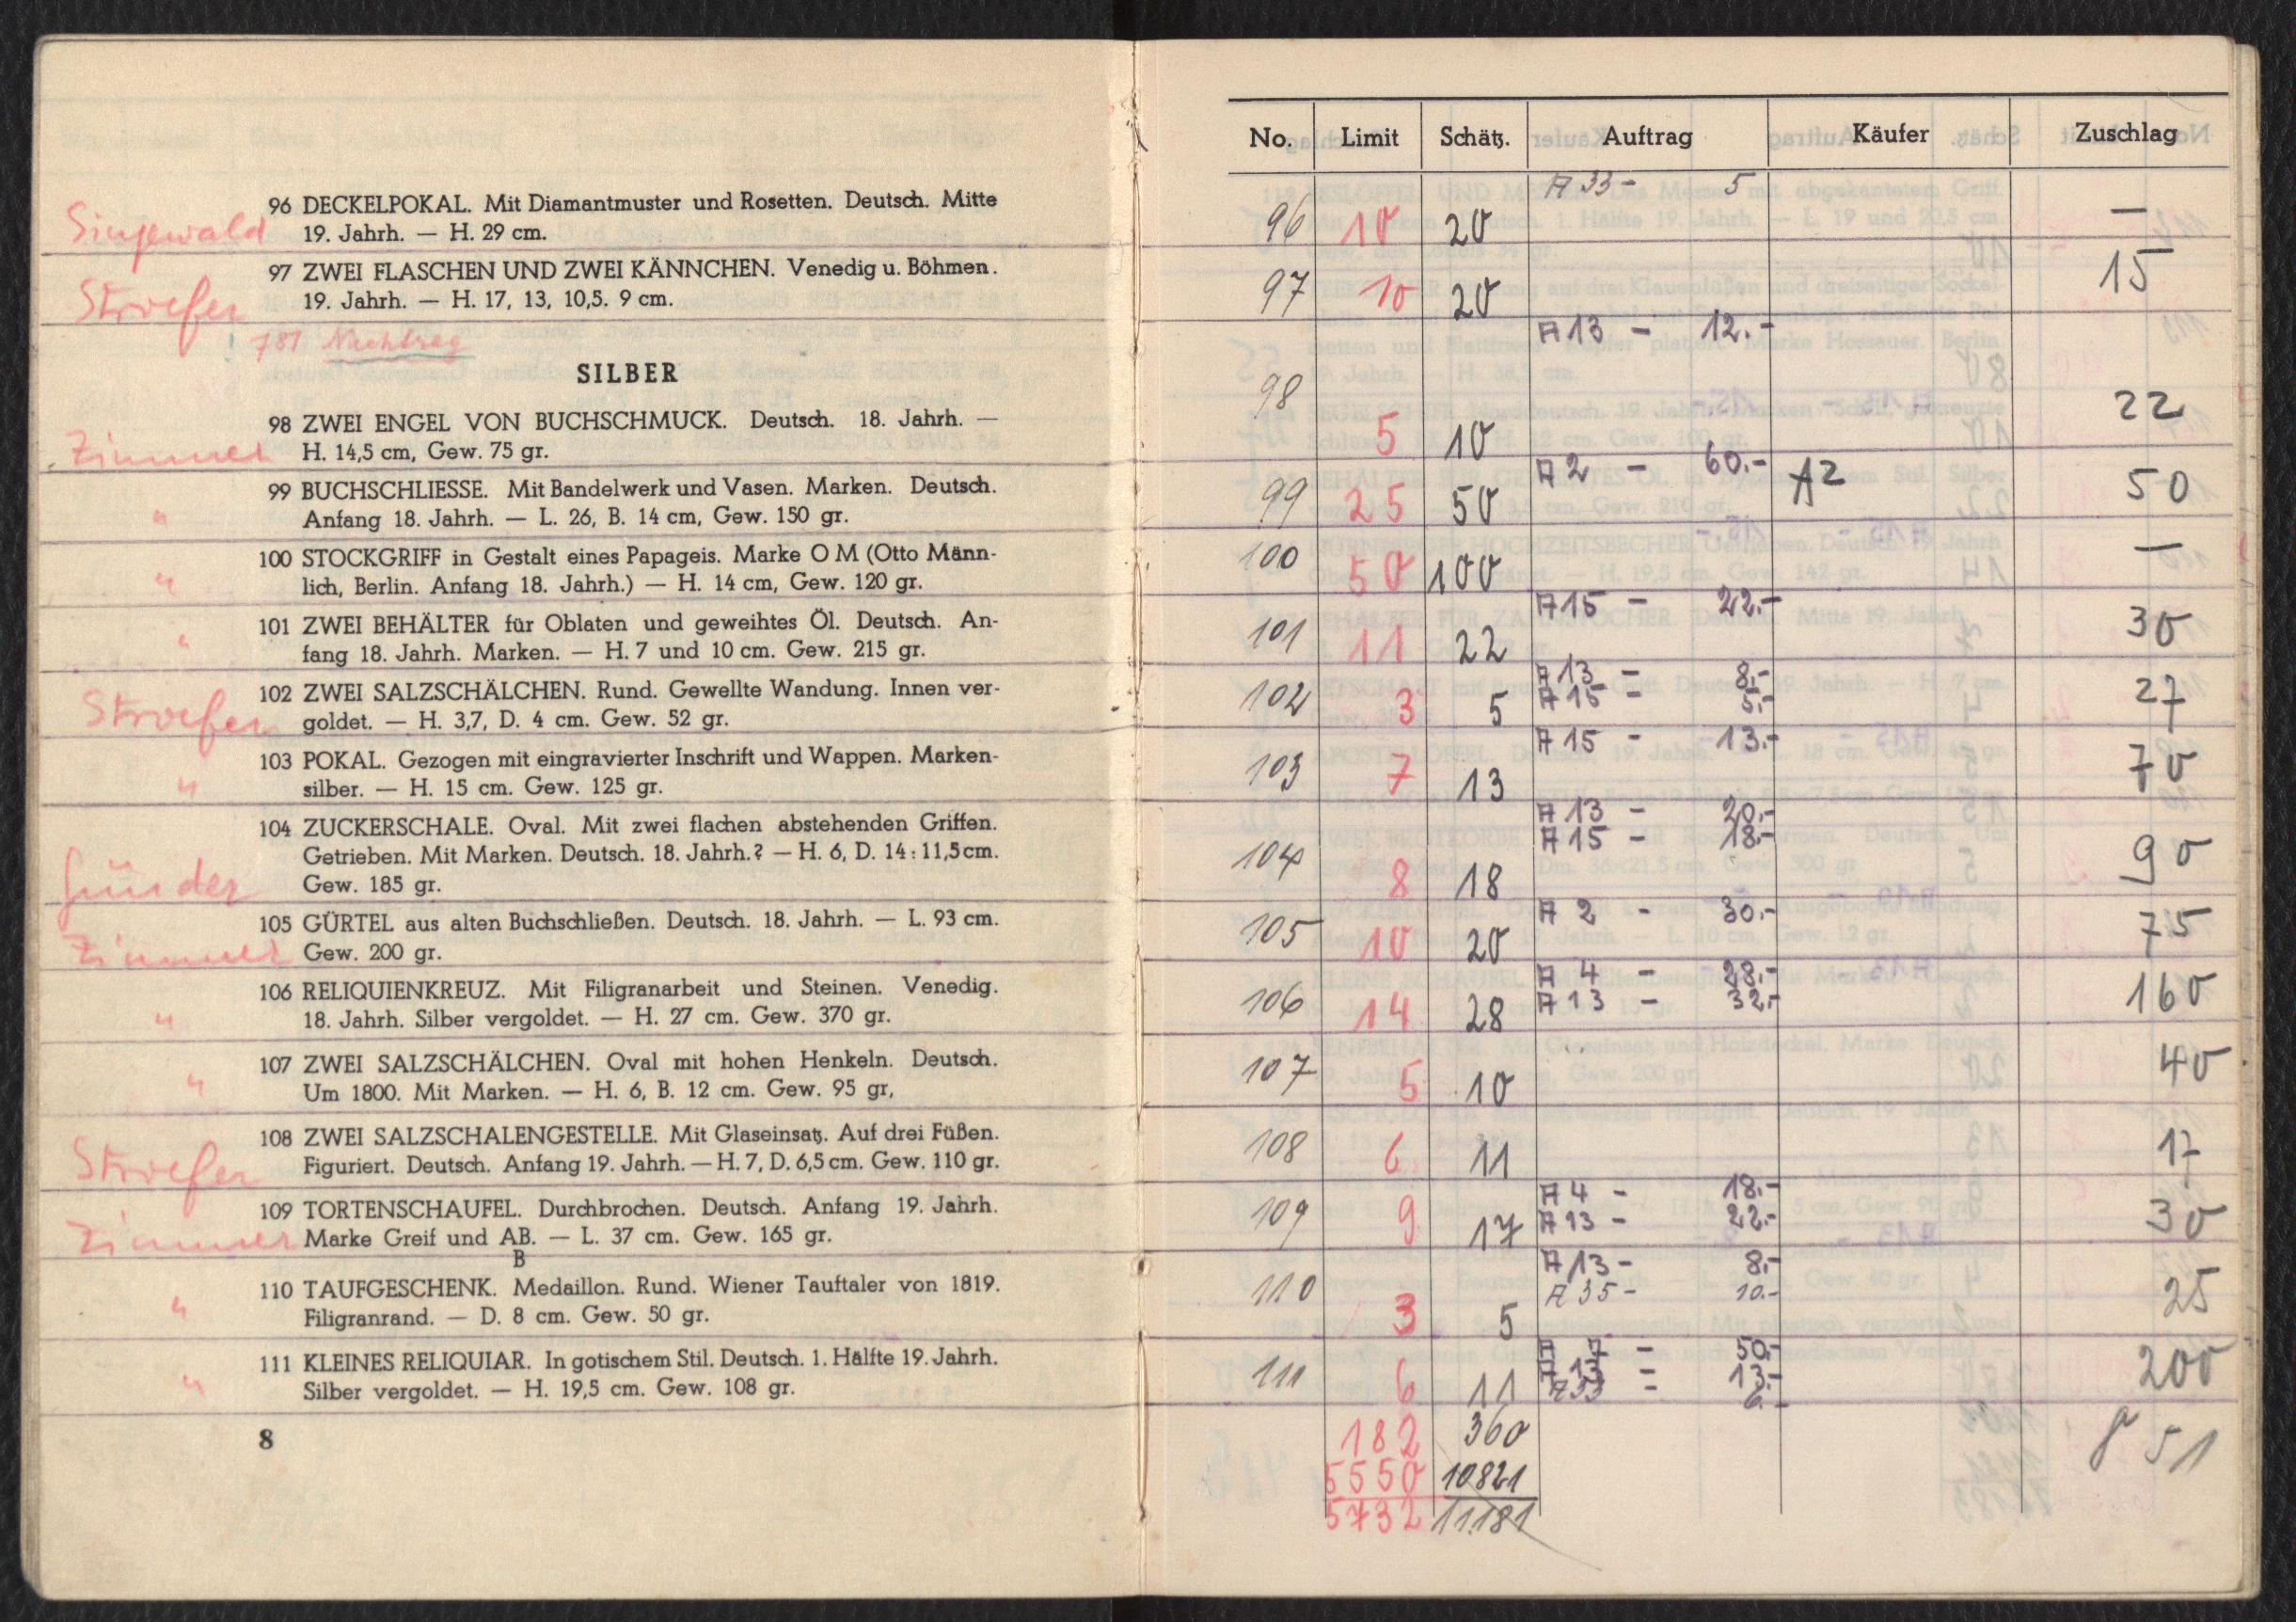 Singewald
96 DECKELPOKAL. Mit Diamantmuster und Rosetten. Deutsch. Mitte
19. Jahrh. — H. 29 cm.
Stroefer
97 ZWEI FLASCHEN UND ZWEI KÄNNCHEN. Venedig u. Böhmen.
19. Jahrh. — H. 17, 13, 10,5. 9 cm.
! 781 Nachtrag
SILBER
Zimmer
98 ZWEI ENGEL VON BUCHSCHMUCK. Deutsch. 18. Jahrh. —
H. 14,5 cm, Gew. 75 gr.
"
99 BUCHSCHLIESSE. Mit Bandelwerk und Vasen. Marken. Deutsch.
Anfang 18. Jahrh. — L. 26, B. 14 cm, Gew. 150 gr.
"
100 STOCKGRIFF in Gestalt eines Papageis. Marke O M (Otto Männ-
lich, Berlin. Anfang 18. Jahrh.) — H. 14 cm, Gew. 120 gr.
"
101 ZWEI BEHÄLTER für Oblaten und geweihtes Öl. Deutsch. An-
fang 18. Jahrh. Marken. — H. 7 und 10 cm. Gew. 215 gr.
Stroefer
102 ZWEI SALZSCHÄLCHEN. Rund. Gewellte Wandung. Innen ver-
goldet. — H. 3,7, D. 4 cm. Gew. 52 gr.
"
103 POKAL. Gezogen mit eingravierter Inschrift und Wappen. Marken-
silber. — H. 15 cm. Gew. 125 gr.
Günder
104 ZUCKERSCHALE. Oval. Mit zwei flachen abstehenden Griffen.
Getrieben. Mit Marken. Deutsch. 18. Jahrh.? — H. 6, D. 14:11,5 cm.
Gew. 185 gr.
Zimmer
105 GÜRTEL aus alten Buchschließen. Deutsch. 18. Jahrh. — L. 93 cm.
Gew. 200 gr.
"
106 RELIQUIENKREUZ. Mit Filigranarbeit und Steinen. Venedig.
18. Jahrh. Silber vergoldet. — H. 27 cm. Gew. 370 gr.
"
107 ZWEI SALZSCHÄLCHEN. Oval mit hohen Henkeln. Deutsch.
Um 1800. Mit Marken. — H. 6, B. 12 cm. Gew. 95 gr,
Stroefer
108 ZWEI SALZSCHALENGESTELLE. Mit Glaseinsatz. Auf drei Füßen.
Figuriert. Deutsch. Anfang 19. Jahrh. — H. 7, D. 6,5 cm. Gew. 110 gr.
Zimmer
109 TORTENSCHAUFEL. Durchbrochen. Deutsch. Anfang 19. Jahrh.
Marke Greif und AB. — L. 37 cm. Gew. 165 gr.
B
"
110 TAUFGESCHENK. Medaillon. Rund. Wiener Tauftaler von 1819.
Filigranrand. — D. 8 cm. Gew. 50 gr.
"
111 KLEINES RELIQUIAR. In gotischem Stil. Deutsch. 1. Hälfte 19. Jahrh.
Silber vergoldet. — H. 19,5 cm. Gew. 108 gr.
8
No. Limit Schätz. Auftrag Käufer Zuschlag
A 33 - 5
96 10 20 —
97 10 20 15
A 13 - 12.-
98 5 10 22
A 2 - 60.-
99 25 50 A2 50
100 50 100 —
A 15 - 22.-
101 11 22 30
A 13 - 8.-
A 15 - 5.-
102 3 5 27
A 15 - 13.-
103 7 13 70
A 13 - 20.-
A 15 - 18.-
104 8 18 90
A 2 - 30.-
105 10 20 75
A 4 - 28.-
A 13 - 32.-
106 14 28 160
107 5 10 40
108 6 11 17
A 4 - 18.-
A 13 - 22.-
109 9 17 30
A 13 - 8.-
A 35 - 10.-
110 3 5 25
A 7 - 50.-
A 13 - 13.-
A 33 - 6.-
111 6 11 200
182 360 851
5550 10821
5732 11181